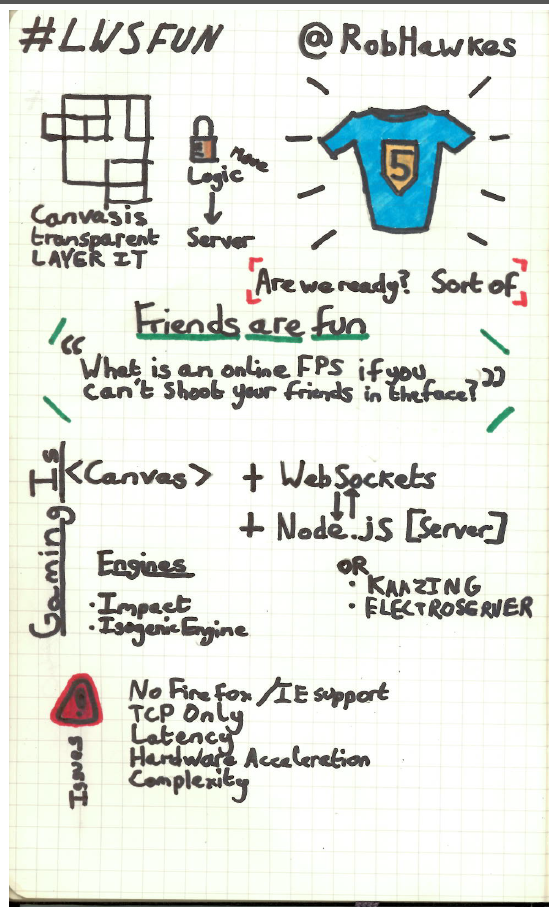 #LWSFUN
@RobHawkes
5
Move
Logic
Server
Canvas is
transparent
LAYER IT
[Are we ready? Sort of]
Friends are fun
“What is an online FPS if you
can't shoot your friends in the face?”
Gaming Is
<Canvas> + WebSockets
+ Node.js [Server]
OR
· KAAZING
· ELECTROSERVER
Engines
· Impact
· Isogenic Engine
!
Issues
No Firefox/IE support
TCP Only
Latency
Hardware Acceleration
Complexity